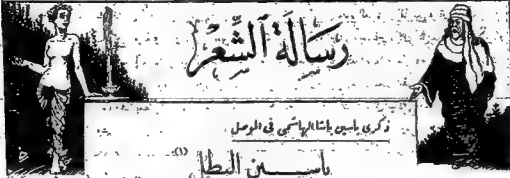 رسَالَة الشِّعْر
ذكرى ياسين باشا الهاشمي في الموصل
ياسين البطل (١)